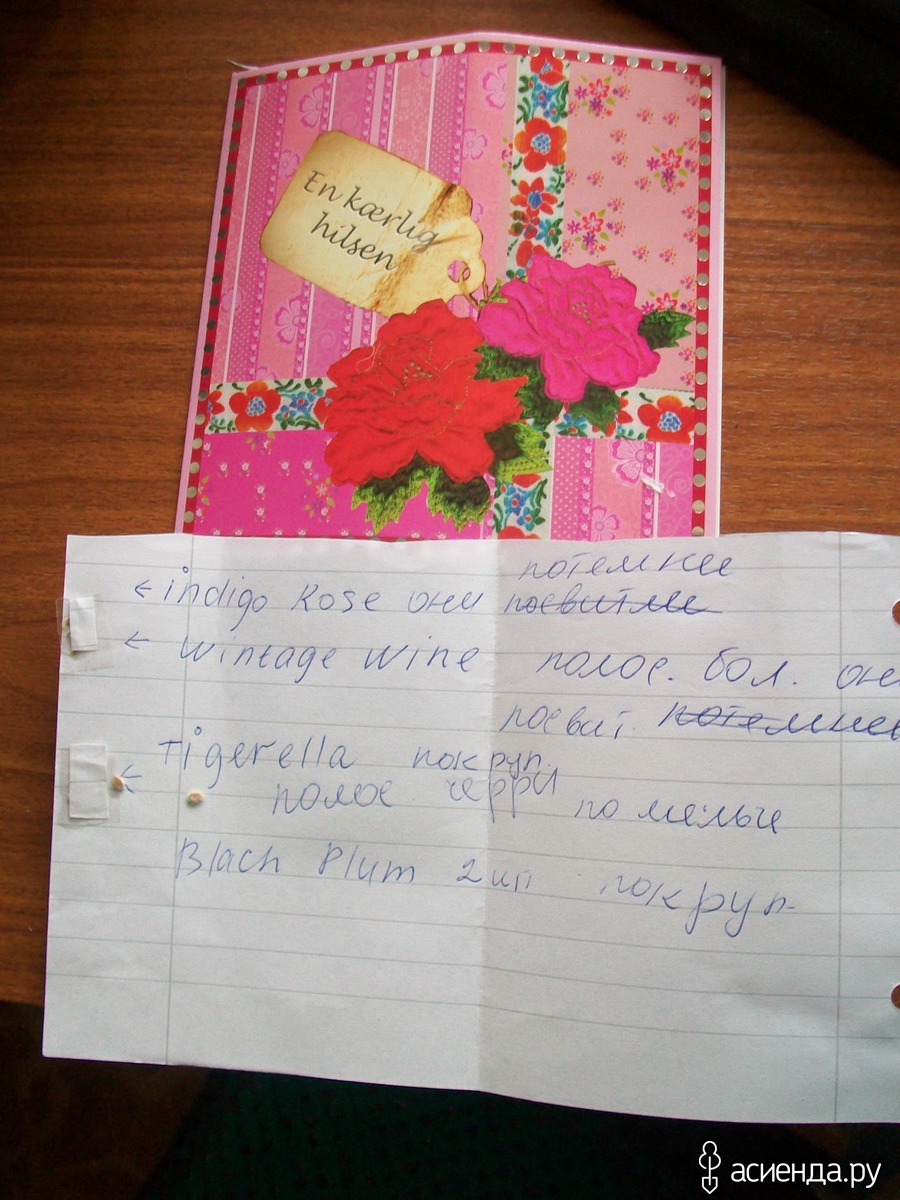 En kærlig
hilsen
потемнее
← indigo Rose они посвитле
← Wintage Wine полос. бол. они
посвит. потемнее
Tigerella покруп.
← полос черри
по мельче
Blach Plum 2шт покруп.
асиенда.ру